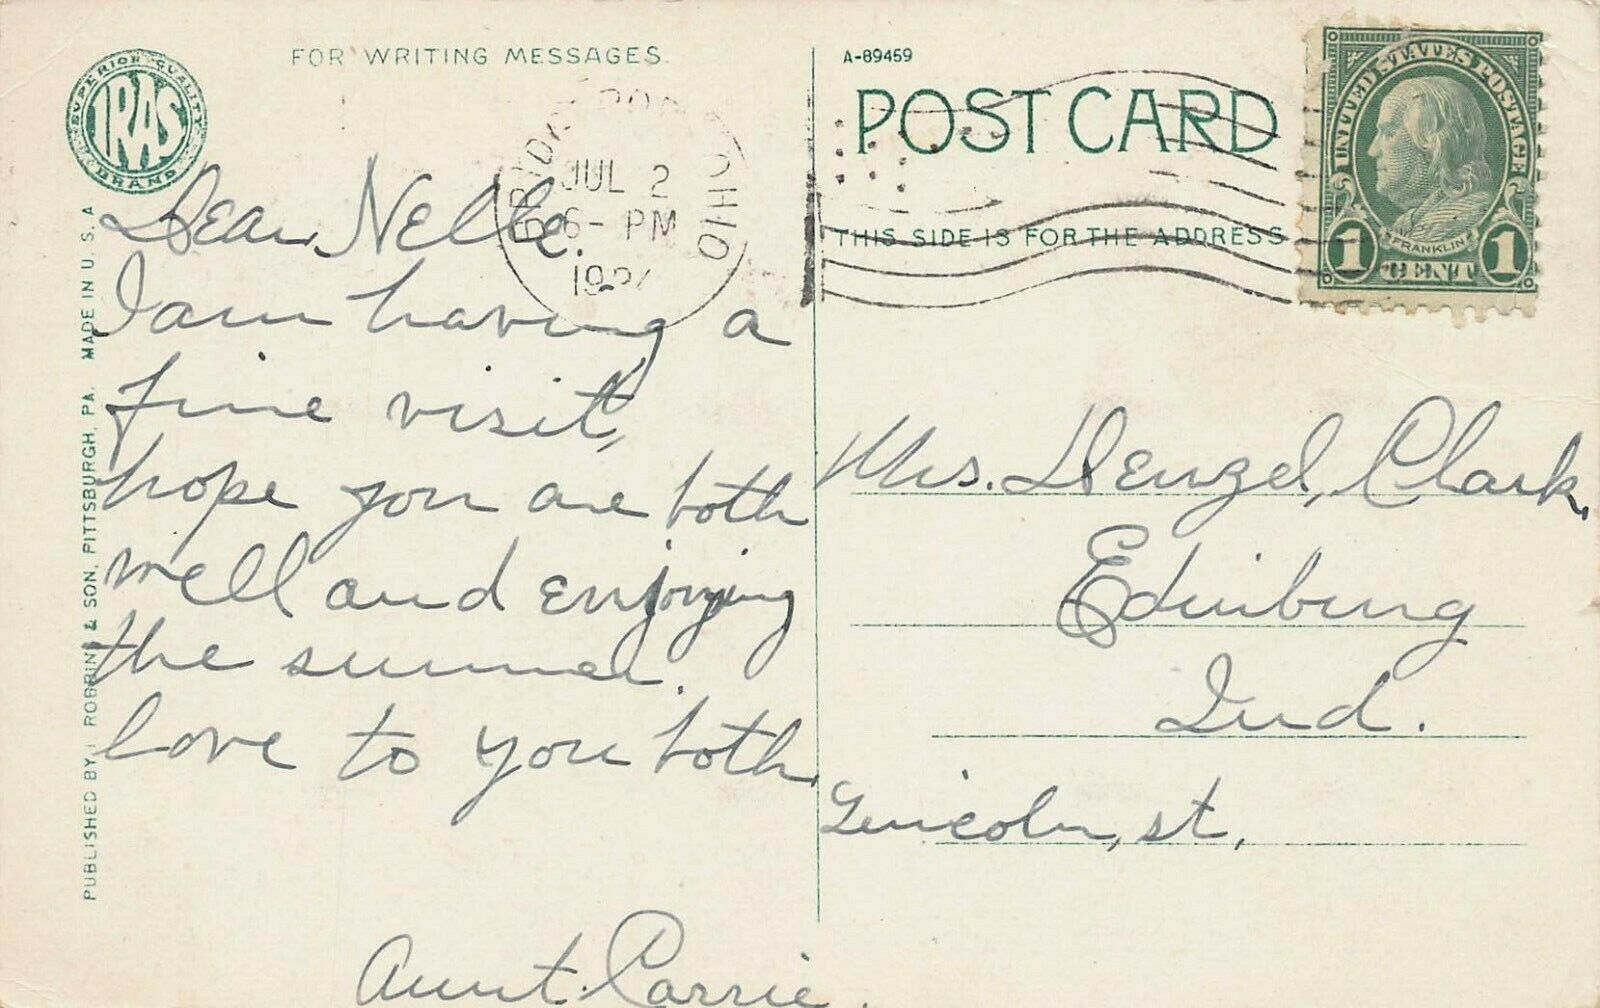 FOR WRITING MESSAGES.
SUPERIOR QUALITY
IRAS
BRAND
Dear Nelle.
I am having a
fine visit,
hope you are both
well and enjoying
the summer.
love to you both.
Aunt Carrie.
PUBLISHED BY I. ROBBINS & SON, PITTSBURGH, PA. MADE IN U.S.A
BRIDGEPORT OHIO
JUL 2
6 - PM
A-89469
POST CARD
THIS SIDE IS FOR THE ADDRESS
UNITED STATES POSTAGE
FRANKLIN
1 CENT 1
Mrs. Denzel, Clark,
Edinburg
Ind.
Lincoln, st,